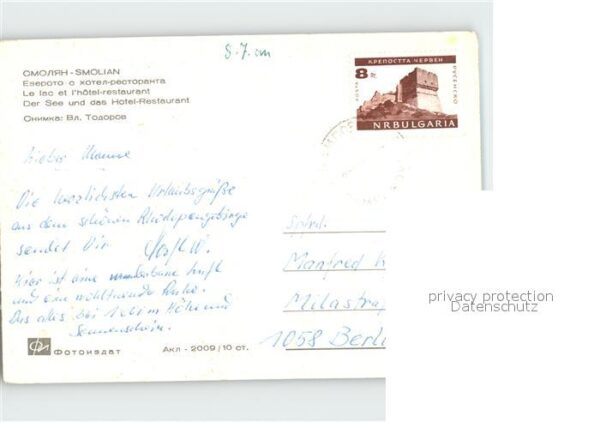 8.7.
СМОЛЯН - SMOLIAN
Езерото с хотел-ресторанта
Le lac et l'hôtel-restaurant
Der See und das Hotel-Restaurant
Снимка: Вл. Тодоров
КРЕПОСТТА ЧЕРВЕН
8 ст.
ПОЩА
РУСЕНСКО
NR BULGARIA
Lieber Manne
Die herzlichsten Urlaubsgrüße
aus dem schönen Rhodopengebirge
sendet Dir
Hier ist eine wunderbare Luft
und eine wohltuende Ruhe.
Das alles bei Höhe und
Sonnenschein.
Manfred
Milastraße
1058 Berlin
privacy protection
Datenschutz
Фотоиздат
Акл - 2009 / 10 ст.